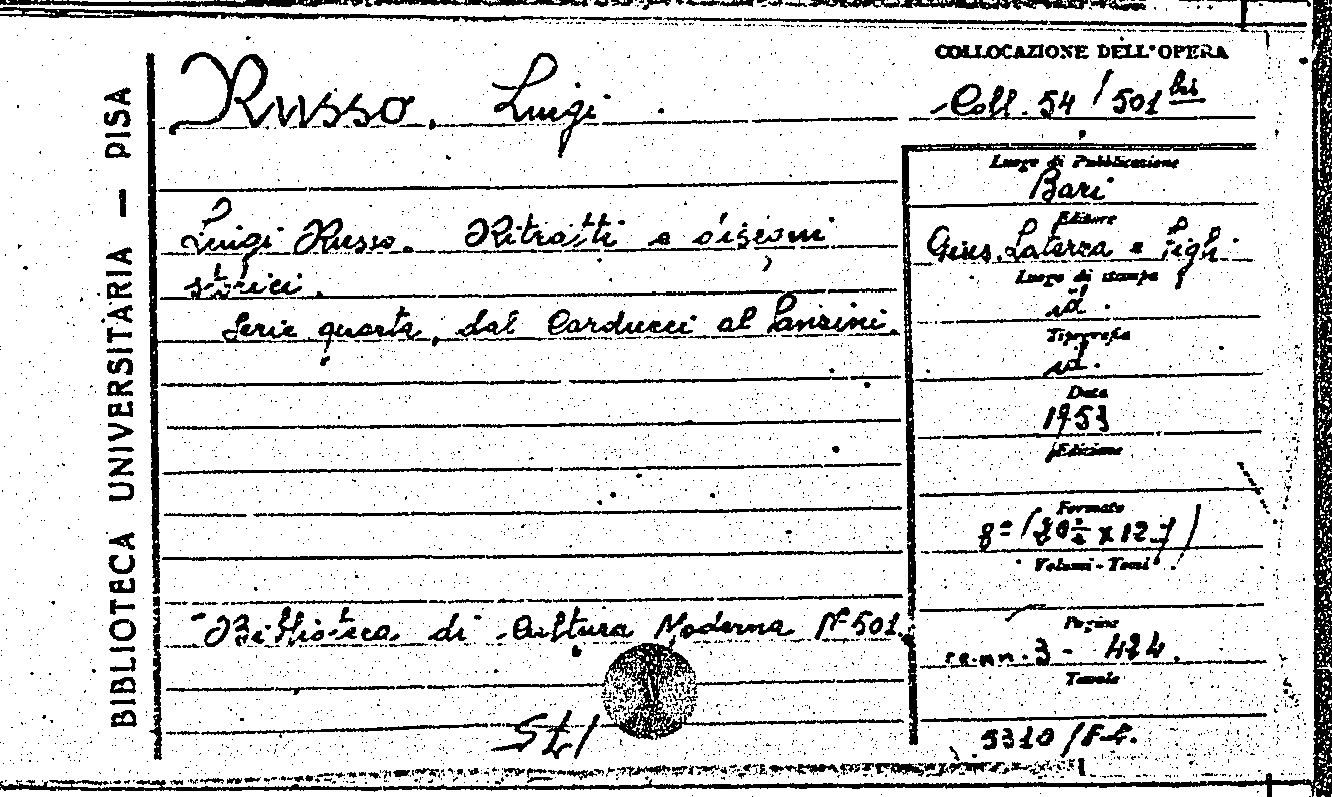 BIBLIOTECA UNIVERSITARIA — PISA
Russo, Luigi.
Luigi Russo. Ritratti e disegni
storici.
Serie quarta, dal Carducci al Panzini.
Biblioteca di Cultura Moderna N° 501.
COLLOCAZIONE DELL'OPERA
Coll. 54 / 501 bis
Luogo di Pubblicazione
Bari
Editore
Gius. Laterza e Figli
Luogo di stampa
id.
Tipografia
id.
Data
1953
Edizione
Formato
8° (20 x 12)
Volumi - Tomi
Pagine
cc.nn. 3 - 424.
Tavole